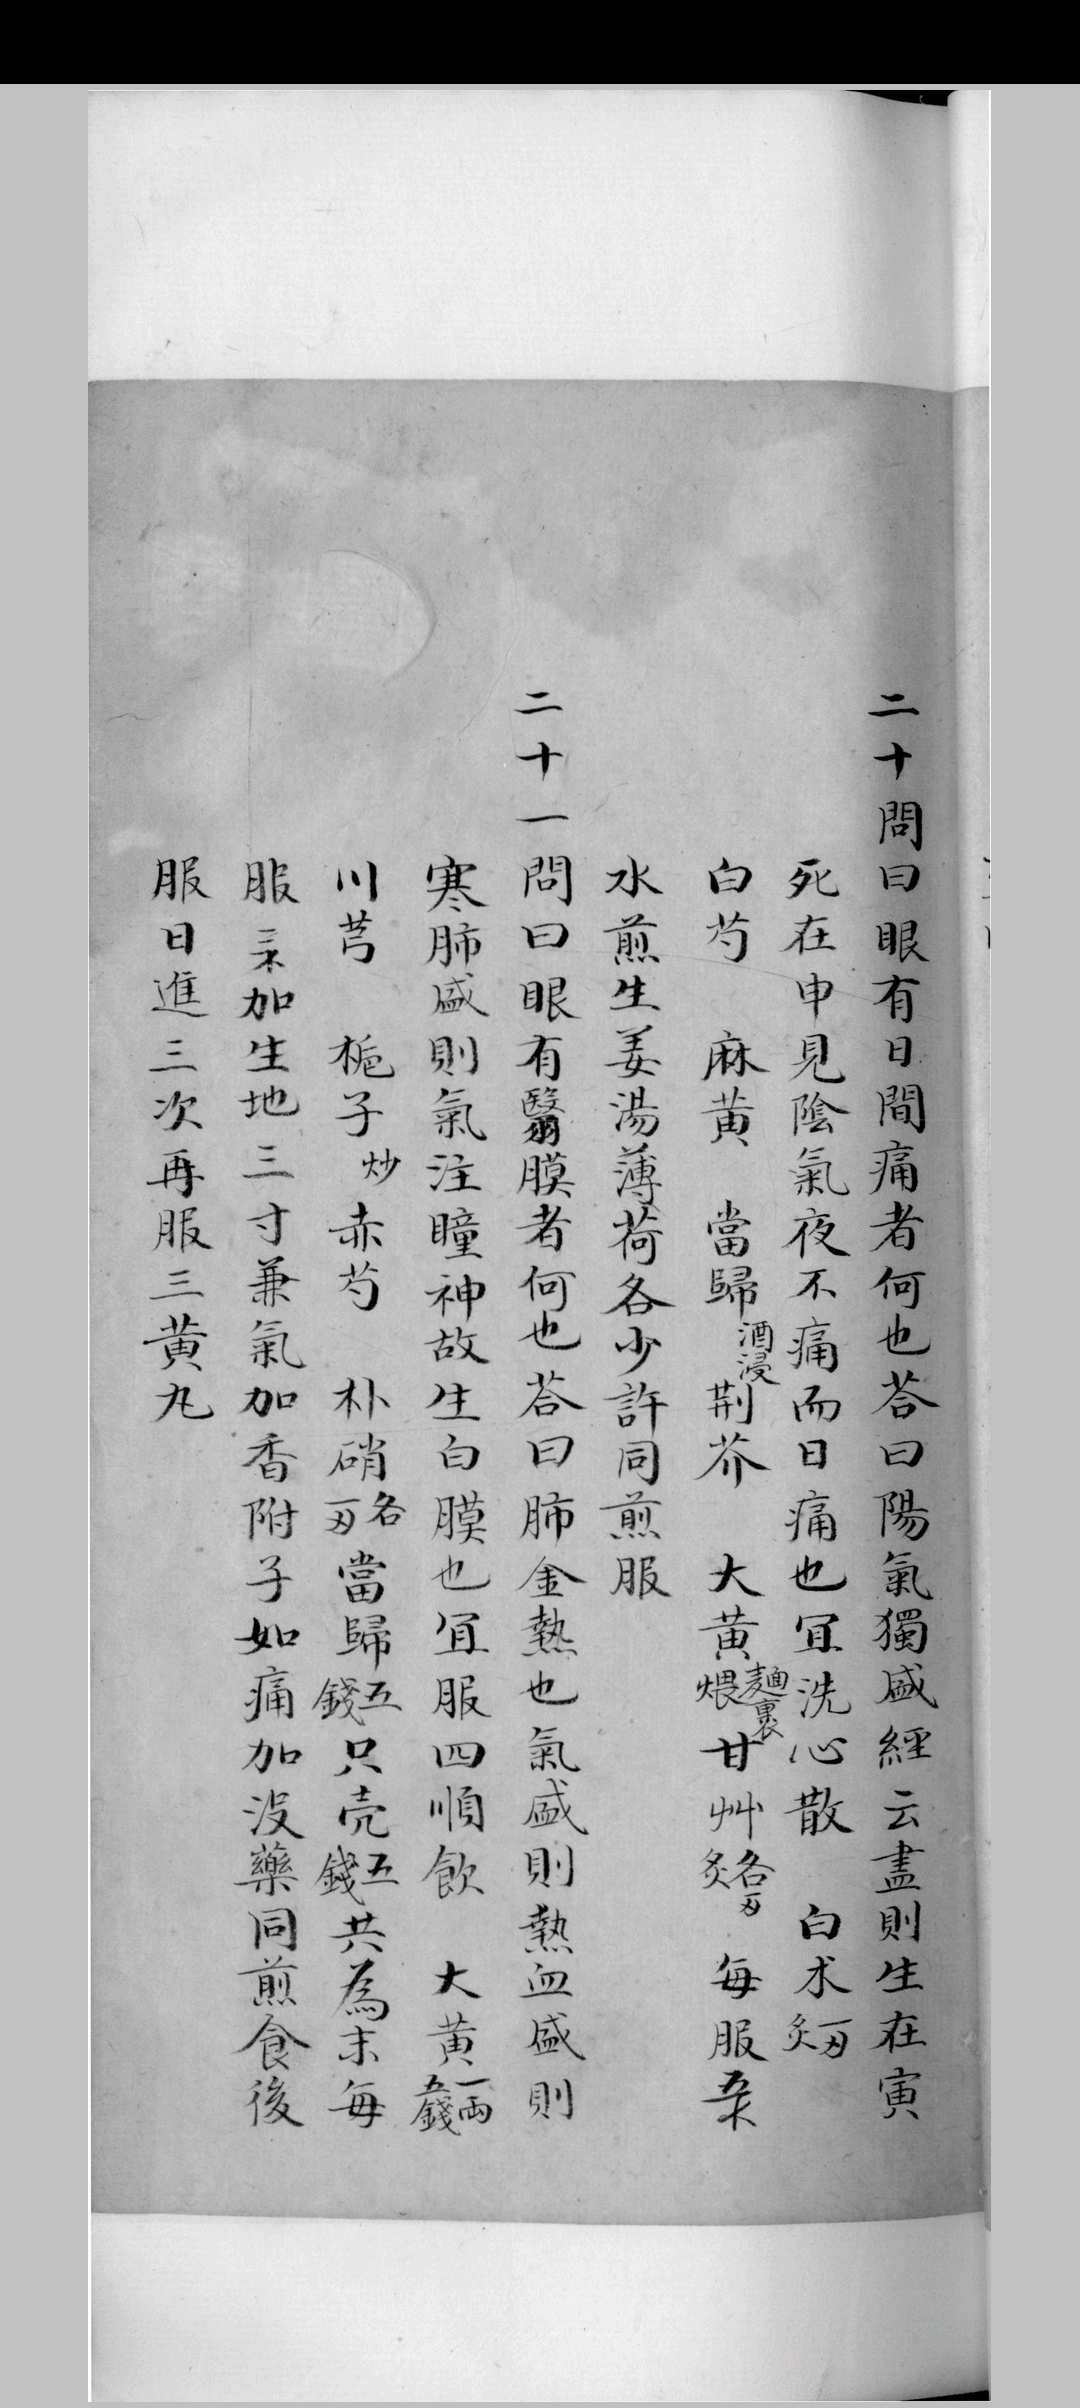 二十問曰眼有日間痛者何也荅曰陽氣獨盛經云盡則生在寅
死在申見陰氣夜不痛而日痛也冝洗心散　白朮炙一刄
白芍　麻黄　當歸酒浸荆芥　大黄麺裹煨甘艸炙各一刄　每服
水煎生姜湯薄荷各少許同煎服
二十一問曰眼有翳膜者何也荅曰肺金熱也氣盛則熱血盛則
寒肺盛則氣注瞳神故生白膜也冝服四順飲　大黄一兩五錢
川芎　梔子炒赤芍　朴硝各一刄當歸五錢只壳五錢共為末每
服加生地三寸兼氣加香附子如痛加没藥同煎食後
服日進三次再服三黄丸